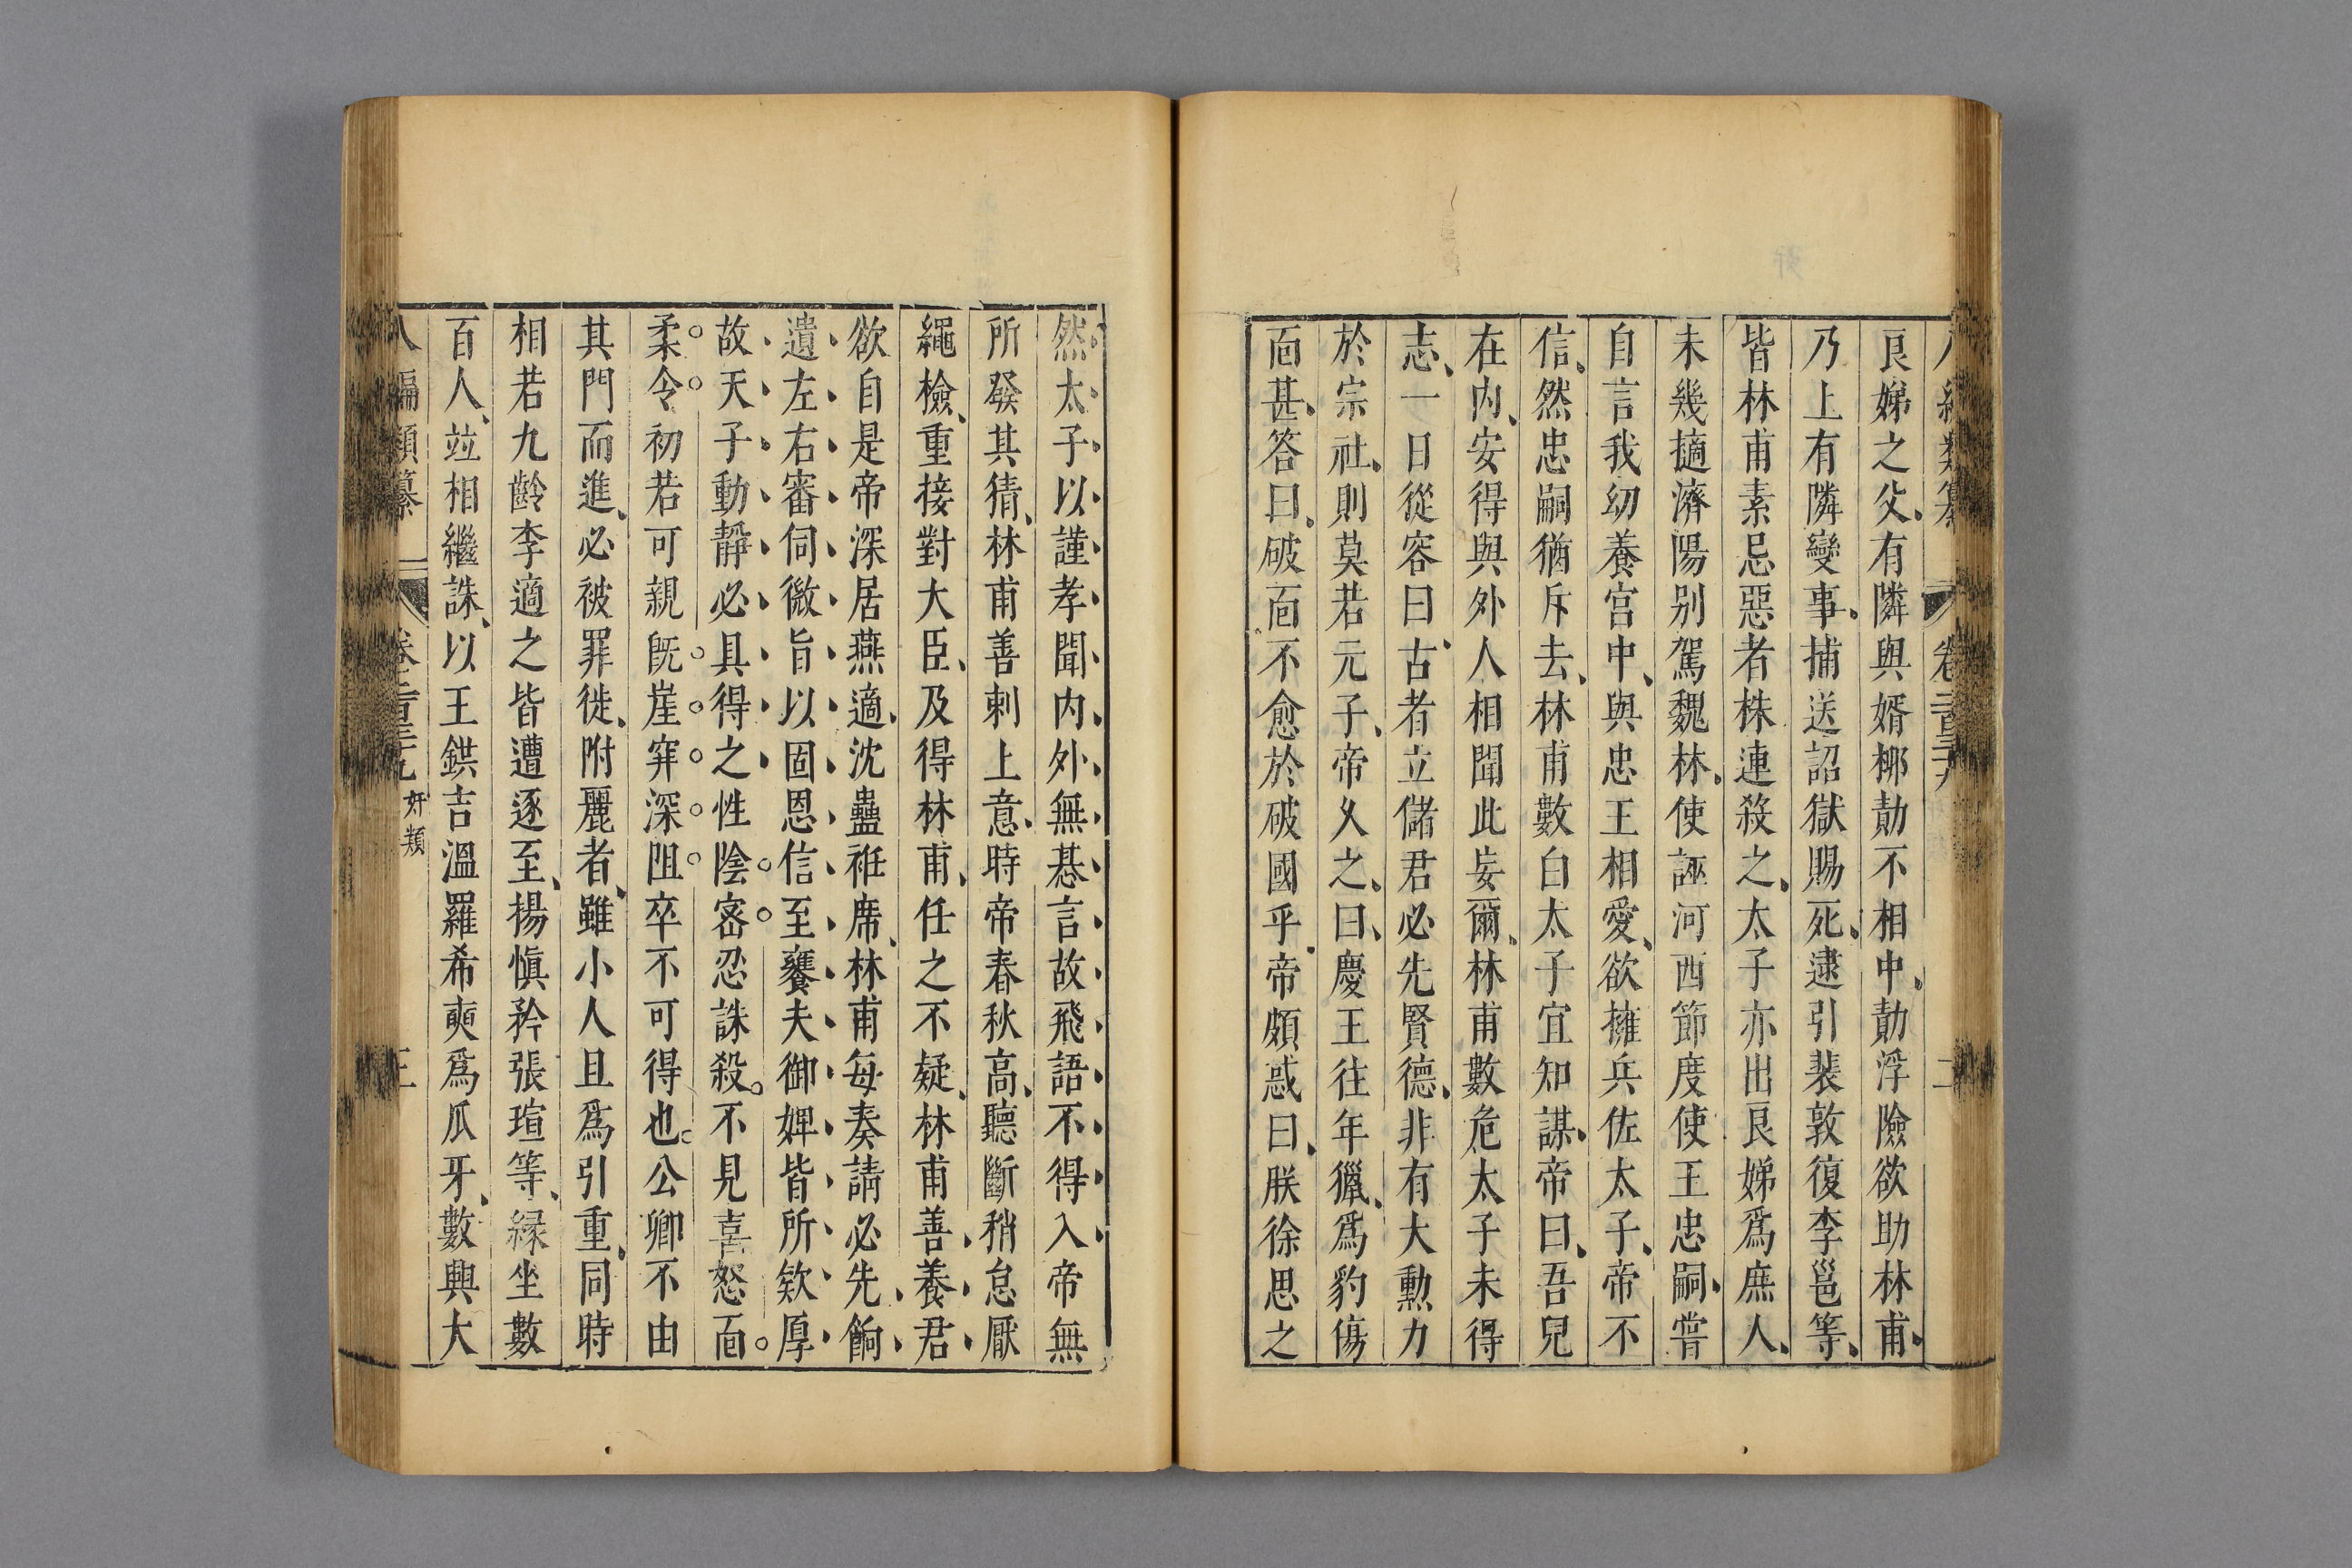 良娣之父有隣與婿栁勣不相中勣浮險欲助林甫
乃上有隣變事捕送詔獄賜死逮引裴敦復李邕等
皆林甫素忌惡者株連殺之太子亦出良娣爲庶人
未幾擿濟陽别駕魏林使誣河西節度使王忠嗣嘗
自言我幼養宫中與忠王相愛欲擁兵佐太子帝不
信然忠嗣猶斥去林甫數白太子宜知謀帝曰吾兒
在内安得與外人相聞此妄爾林甫數危太子未得
志一日從容曰古者立儲君必先賢德非有大勲力
於宗社則莫若元子帝乆之曰慶王往年獵爲豹傷
靣甚答曰破靣不愈於破國乎帝頗惑曰朕徐思之
然太子以謹孝聞内外無惎言故飛語不得入帝無
所發其猜林甫善刺上意時帝春秋高聽斷稍怠厭
繩檢重接對大臣及得林甫任之不疑林甫善養君
欲自是帝深居燕適沈蠱袵席林甫每奏請必先餉
遺左右審伺微旨以固恩信至饔夫御婢皆所欵厚
故天子動静必具得之性陰宻忍誅殺不見喜怒靣
柔令初若可親旣崖穽深阻卒不可得也公卿不由
其門而進必被罪徙附麗者雖小人且爲引重同時
相若九齡李適之皆遭逐至揚愼矜張瑄等緑坐數
百人竝相繼誅以王鉷吉溫羅希奭爲瓜牙數興大
八編類纂 卷二百三十九 奸類 三